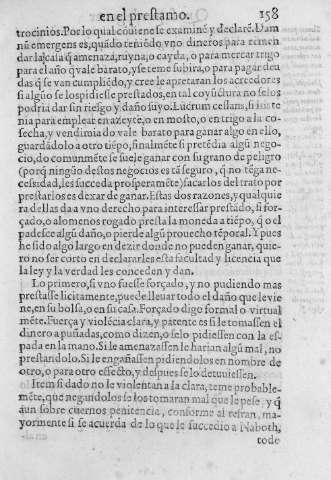 en el prestamo. 158
trocinios. Por lo qual cõuiene se examinē y declarē. Dam
nũ emergens es, quãdo teniẽdo vno dineros para remen
dar la casa q̃ amenaza ruyna, o cayda, o para mercar trigo
para el año q̃ vale barato, y se teme subira, o para pagar deu
das q̃ se van cumpliẽdo, y cree le apretaran los acreedores
si algũo se los pidiesse prestados, en tal coyũctura no selos
podria dar sin riesgo y daño suyo. Lucrum cessans, si los te
nia para emplear en azeyte, o en mosto, o en trigo a la co-
secha, y vendimia do vale barato para ganar algo en ello,
guardãdolo a otro tiẽpo, finalmẽte si pretẽdia algũ nego-
cio, do comunmẽte se suele ganar con su grano de peligro
(porq̃ ningũo destos negocios es tã seguro, q̃ no tẽga ne-
cessidad, les succeda prosperamẽte) sacarlos del trato por
prestarlos es dexar de ganar. Estas dos razones, y qualquie
ra dellas da a vno derecho para interessar prestãdo, si for-
çado, o alomenos rogado presta la moneda a tiẽpo, q̃ o el
padesce algũ daño, o pierde algũ prouecho tẽporal. Y pues
he sido algo largo en dezir donde no pueden ganar, quie-
ro no ser corto en declararles esta facultad y licencia que
la ley y la verdad les conceden y dan.
Lo primero, si vno fuesse forçado, y no pudiendo mas
prestasse licitamente, puede lleuar todo el daño que le vie
ne, en su bolsa, o en su casa. Forçado digo formal o virtual
mẽte. Fuerça y violẽcia clara, y patente es si le tomassen el
dinero a puñadas, como dizen, o selo pidiessen con la es-
pada en la mano. Si le amenazassen le harian algũ mal, no
prestandolo. Si le engañassen pidiendolos en nombre de
otro, o para otro effecto, y despues se lo detuuiessen.
Item si dado no le violentan a la clara, teme probable-
mẽte, que negandolos se los tomaran mal que le pese, y q̃
aun sobre cuernos penitencia, conforme al refran, ma-
yormente si se acuerda de lo que le succedio a Naboth,
todo